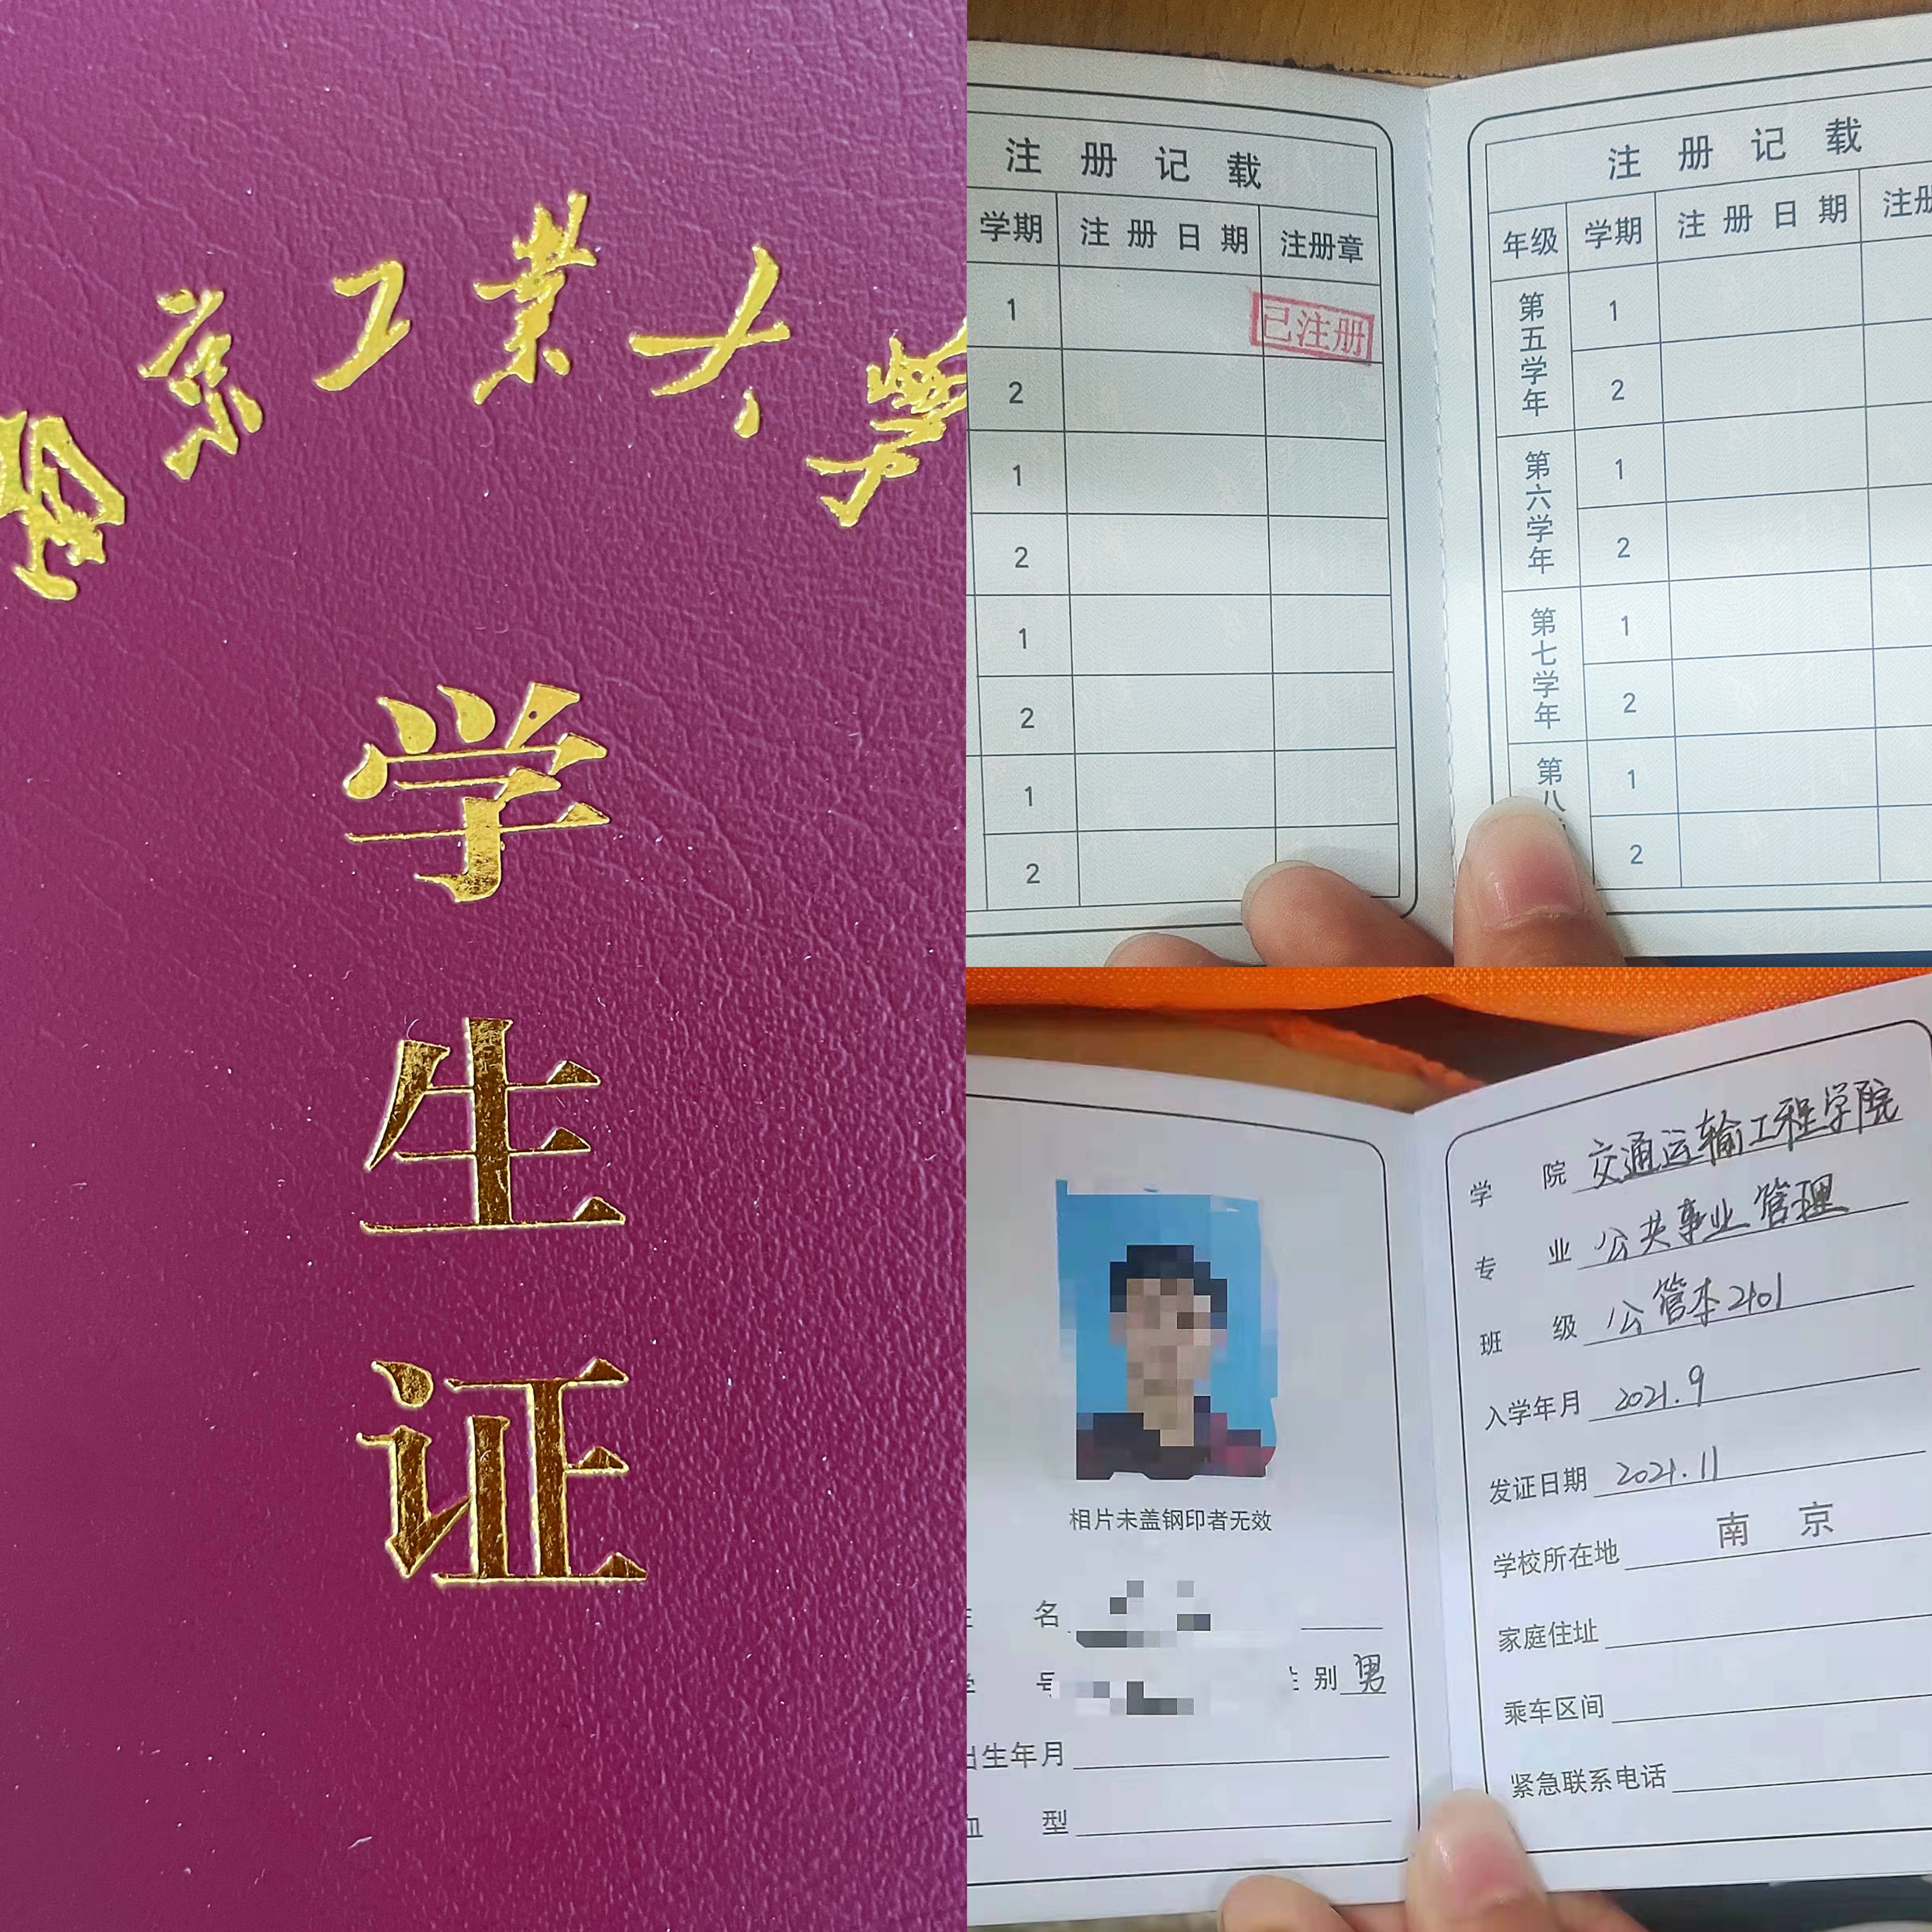 南京工业大学
学
生
证
注册记载
学期 注册日期 注册章
1 已注册
2
1
2
1
2
1
2
注册记载
年级 学期 注册日期 注册
第五学年 1
2
第六学年 1
2
第七学年 1
2
第八 1
2
相片未盖钢印者无效
名
号 性别 男
出生年月
血型
学院 交通运输工程学院
专业 公共事业管理
班级 公管本2101
入学年月 2021.9
发证日期 2021.11
学校所在地 南京
家庭住址
乘车区间
紧急联系电话